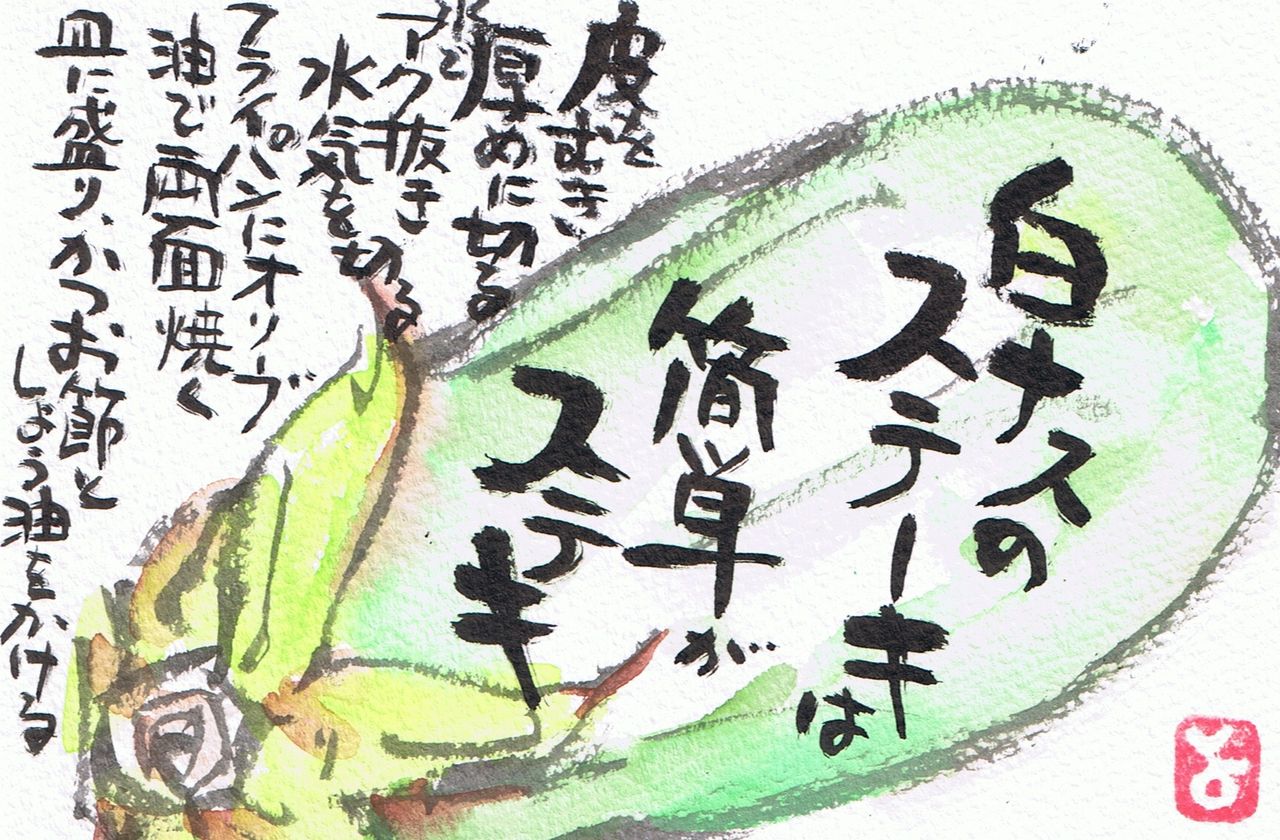 白ナスの
ステーキは
簡単が
ステキ
皮をむき、
厚めに切る
水で
アク抜き
水気を切る
フライパンにオリーブ
油で両面焼く
皿に盛り、かつお節と
しょう油をかける
と